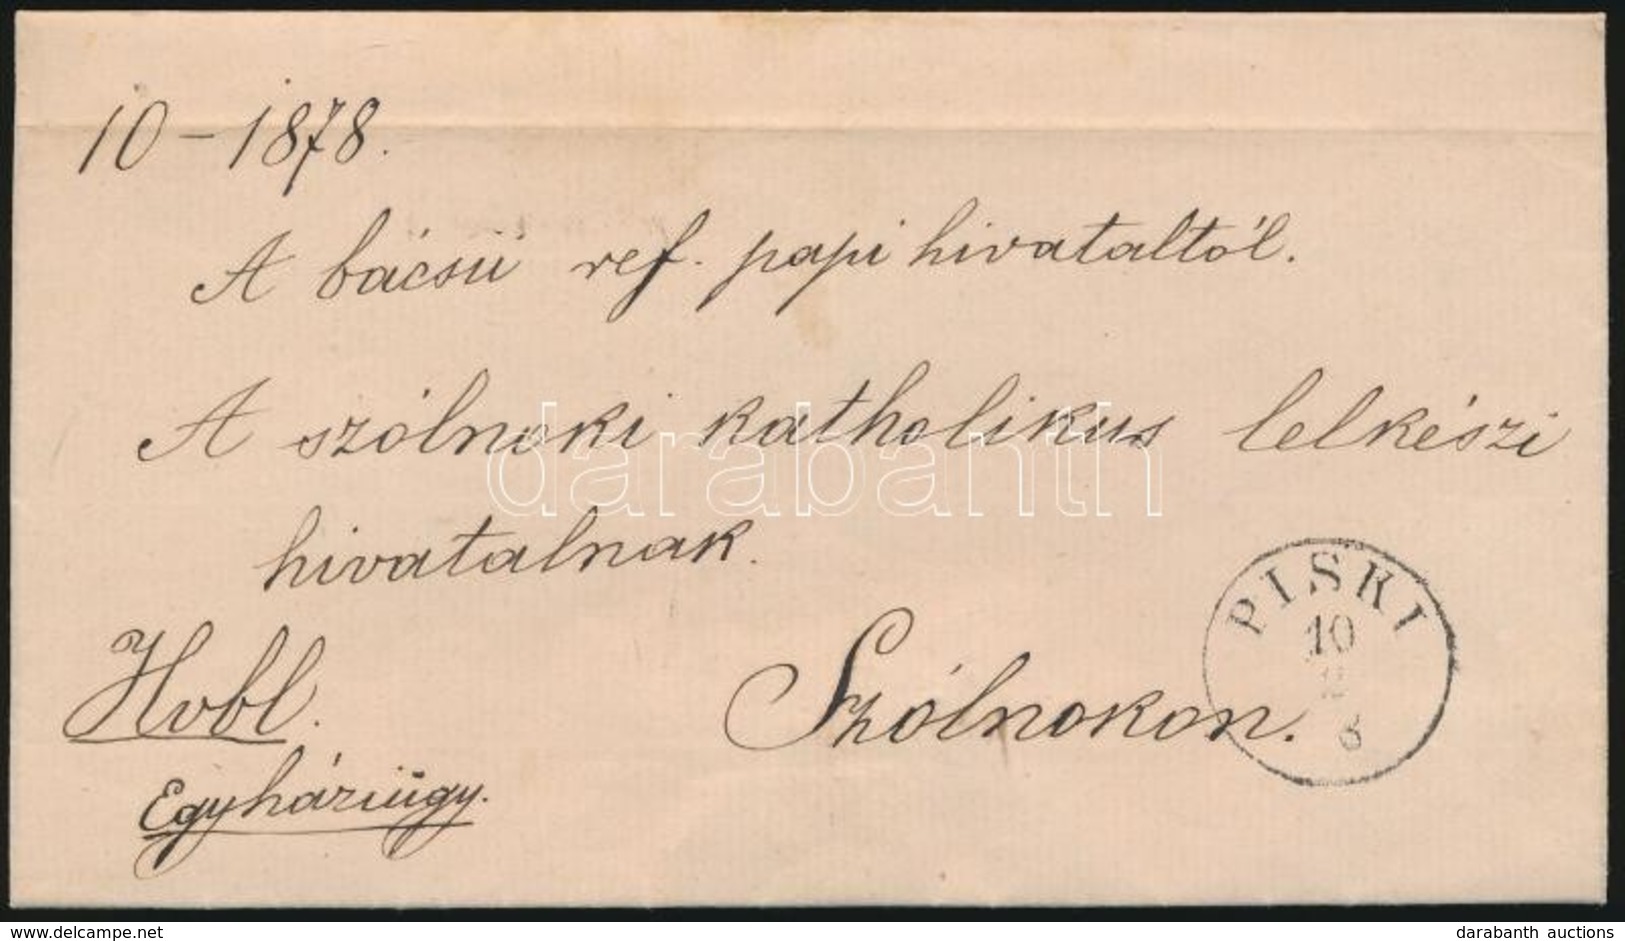 10 – 1878.
A bácsii ref. papi hivataltól.
A szólnoki katholikus lelkészi
hivatalnak.
Hvbl.
Egyháziügy.
Szólnokon.
PISKI
10
8
darabanth
www.delcampe.net
darabanth auctions